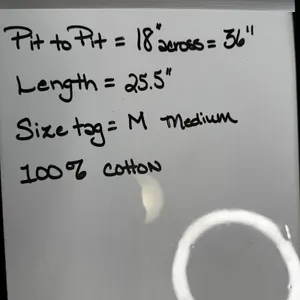 Pit to Pit = 18" across = 36"
Length = 25.5"
Size tag = M Medium
100% cotton